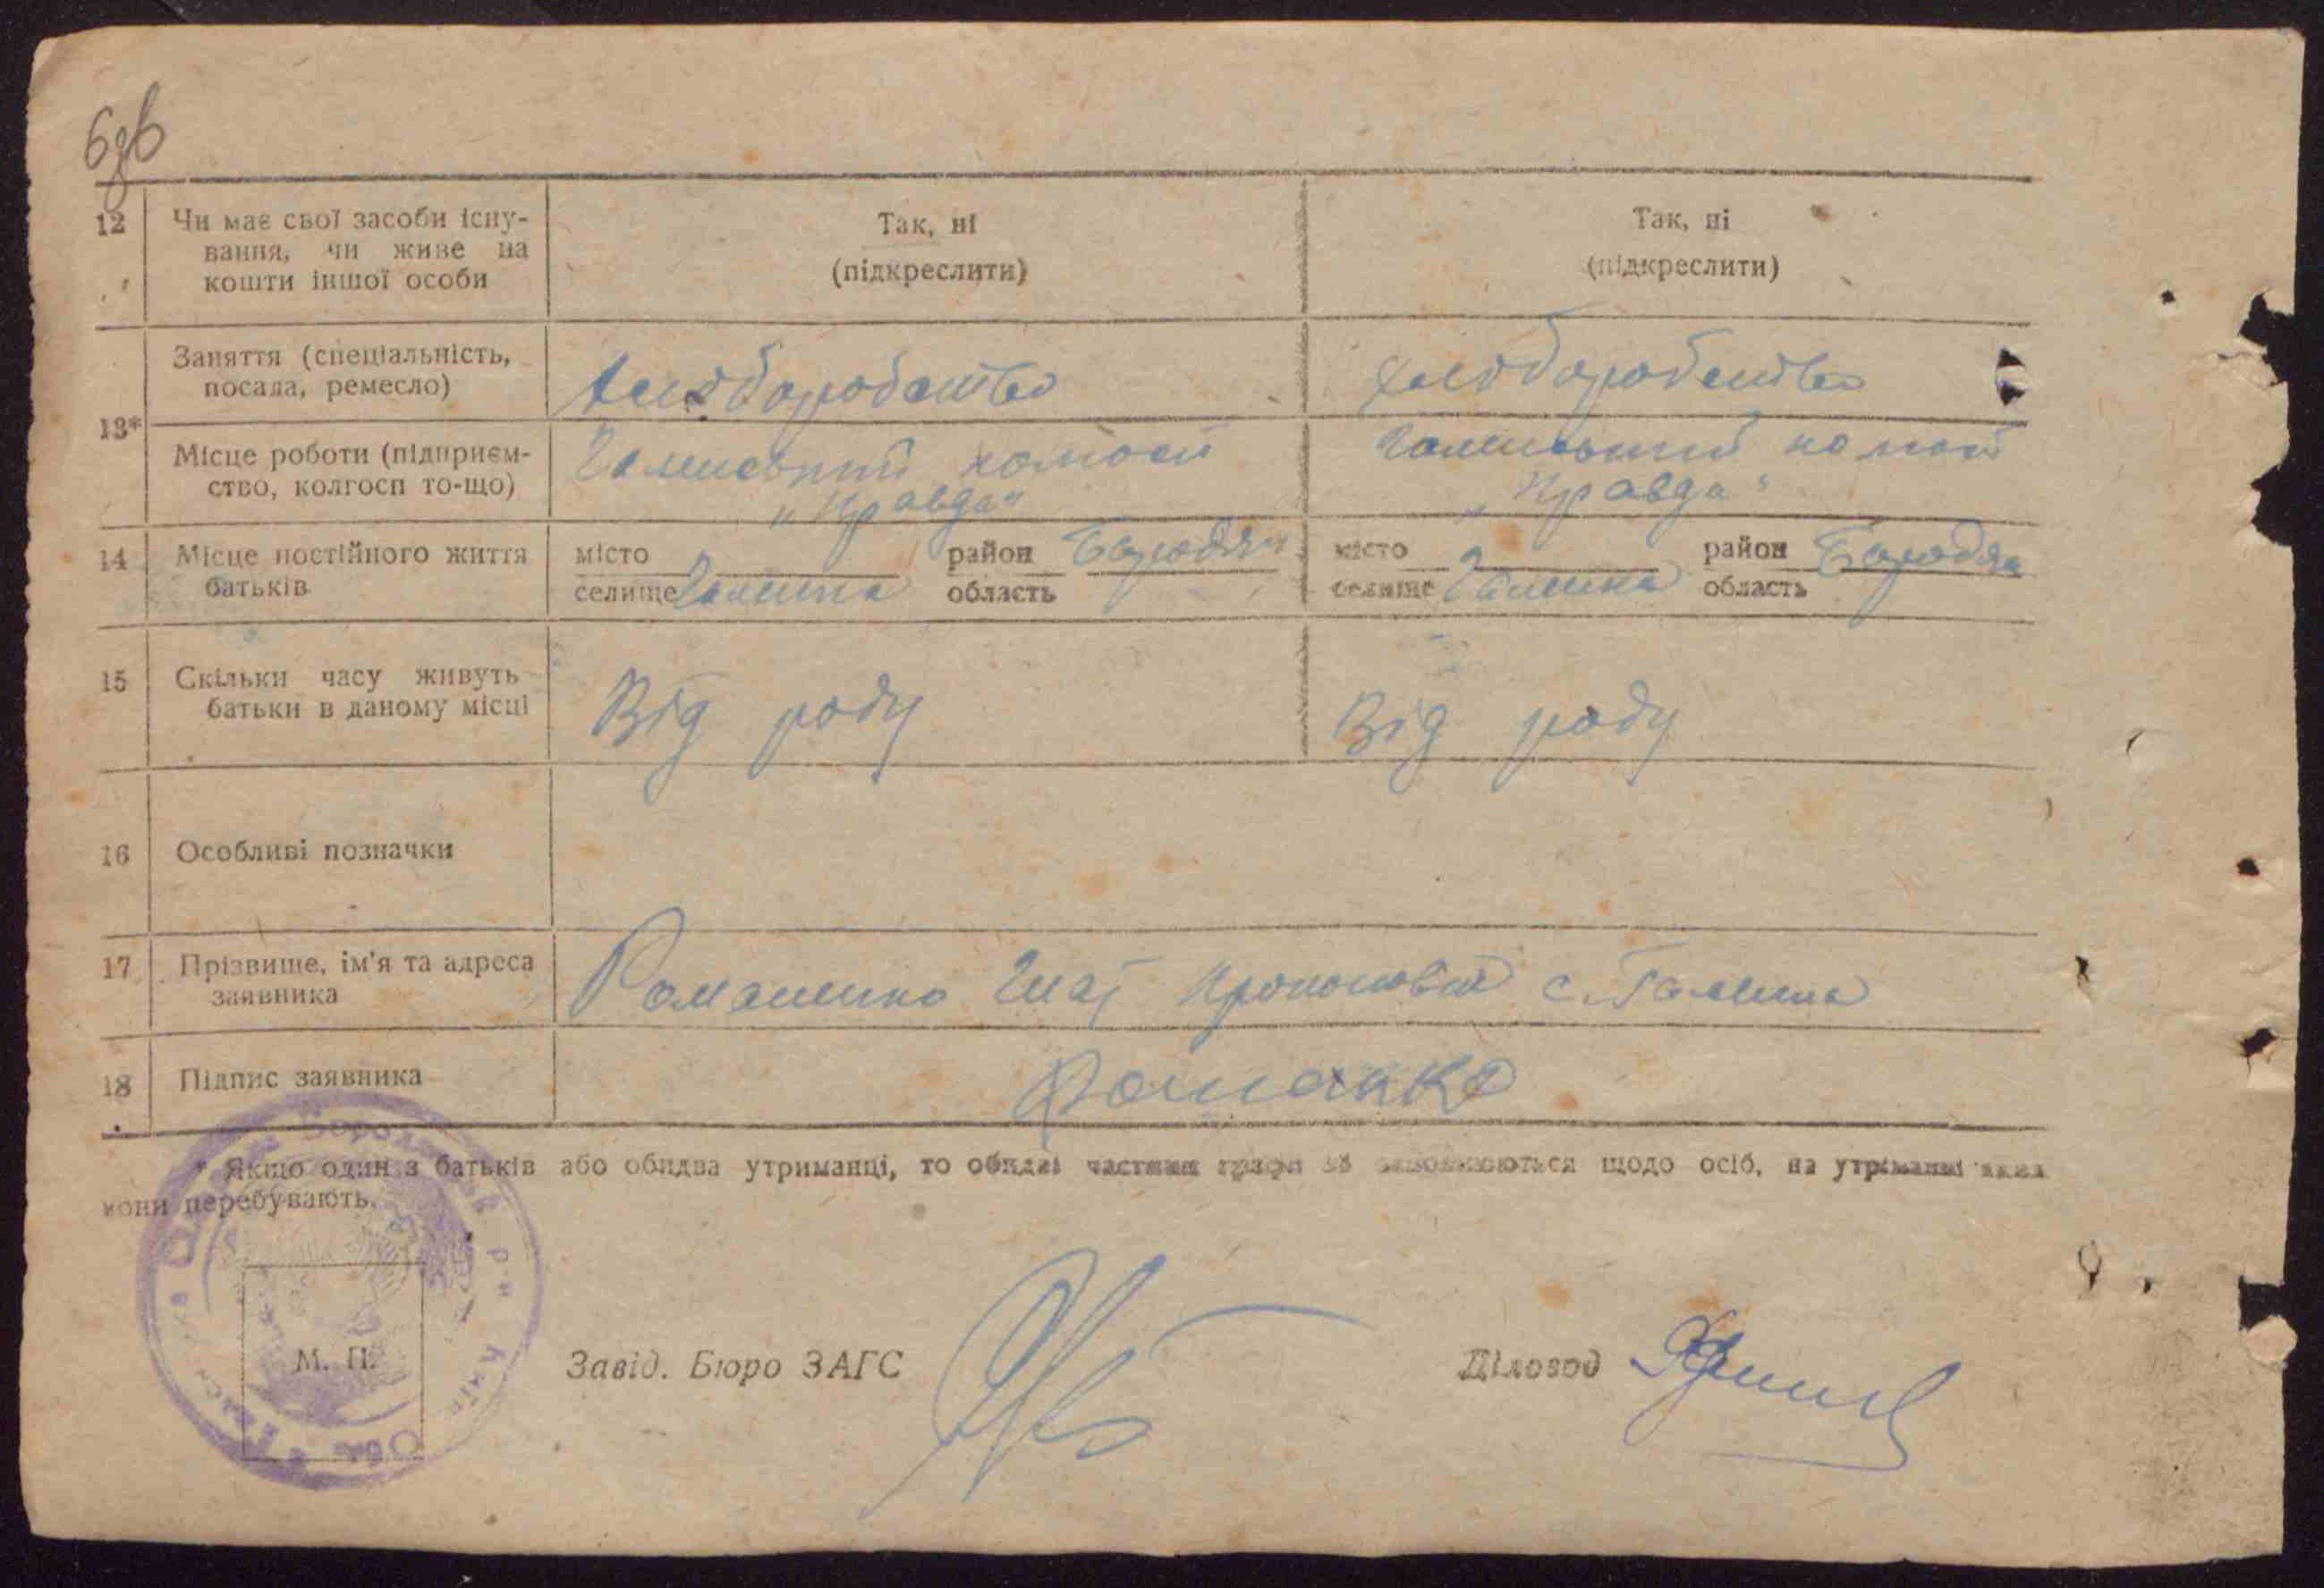 12 Чи має свої засоби існу-
вання, чи живе на
кошти іншої особи
Так, ні
(підкреслити)
Так, ні
(підкреслити)
13*
Заняття (спеціальність,
посада, ремесло)
хліборобство
хліборобство
Місце роботи (підприєм-
ство, колгосп то-що)
„Правда“
„Правда“
14 Місце постійного життя
батьків
місто
селище
район Бородян
область
місто
селище
район Бородян
область
15 Скільки часу живуть
батьки в даному місці
Від роду
Від роду
16 Особливі позначки
17 Прізвище, ім'я та адреса
заявника
Романенко с.
18 Підпис заявника
Романко
* Якщо один з батьків або обидва утриманці, то обидві частини графи 13 заповнюються щодо осіб, на утриманні яких
вони перебувають.
М. П.
Завід. Бюро ЗАГС
Діловод